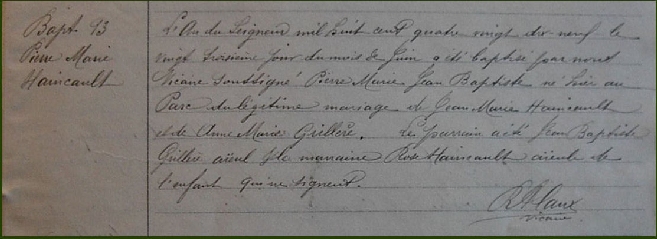 Bapt. 93
Pierre Marie
Hainicault
L'An du Seigneur mil huit cent quatre vingt dix-neuf le
vingt troisième jour du mois de Juin a été baptisé par nous
Vicaire soussigné Pierre Marie Jean Baptiste né hier au
Parc du légitime mariage de Jean Marie Hainicault
et de Anne Marie Grillère. Le parrain a été Jean Baptiste
Grillère aïeul & la marraine Rose Hainicault aïeule de
l'enfant qui ne signent.
vicaire